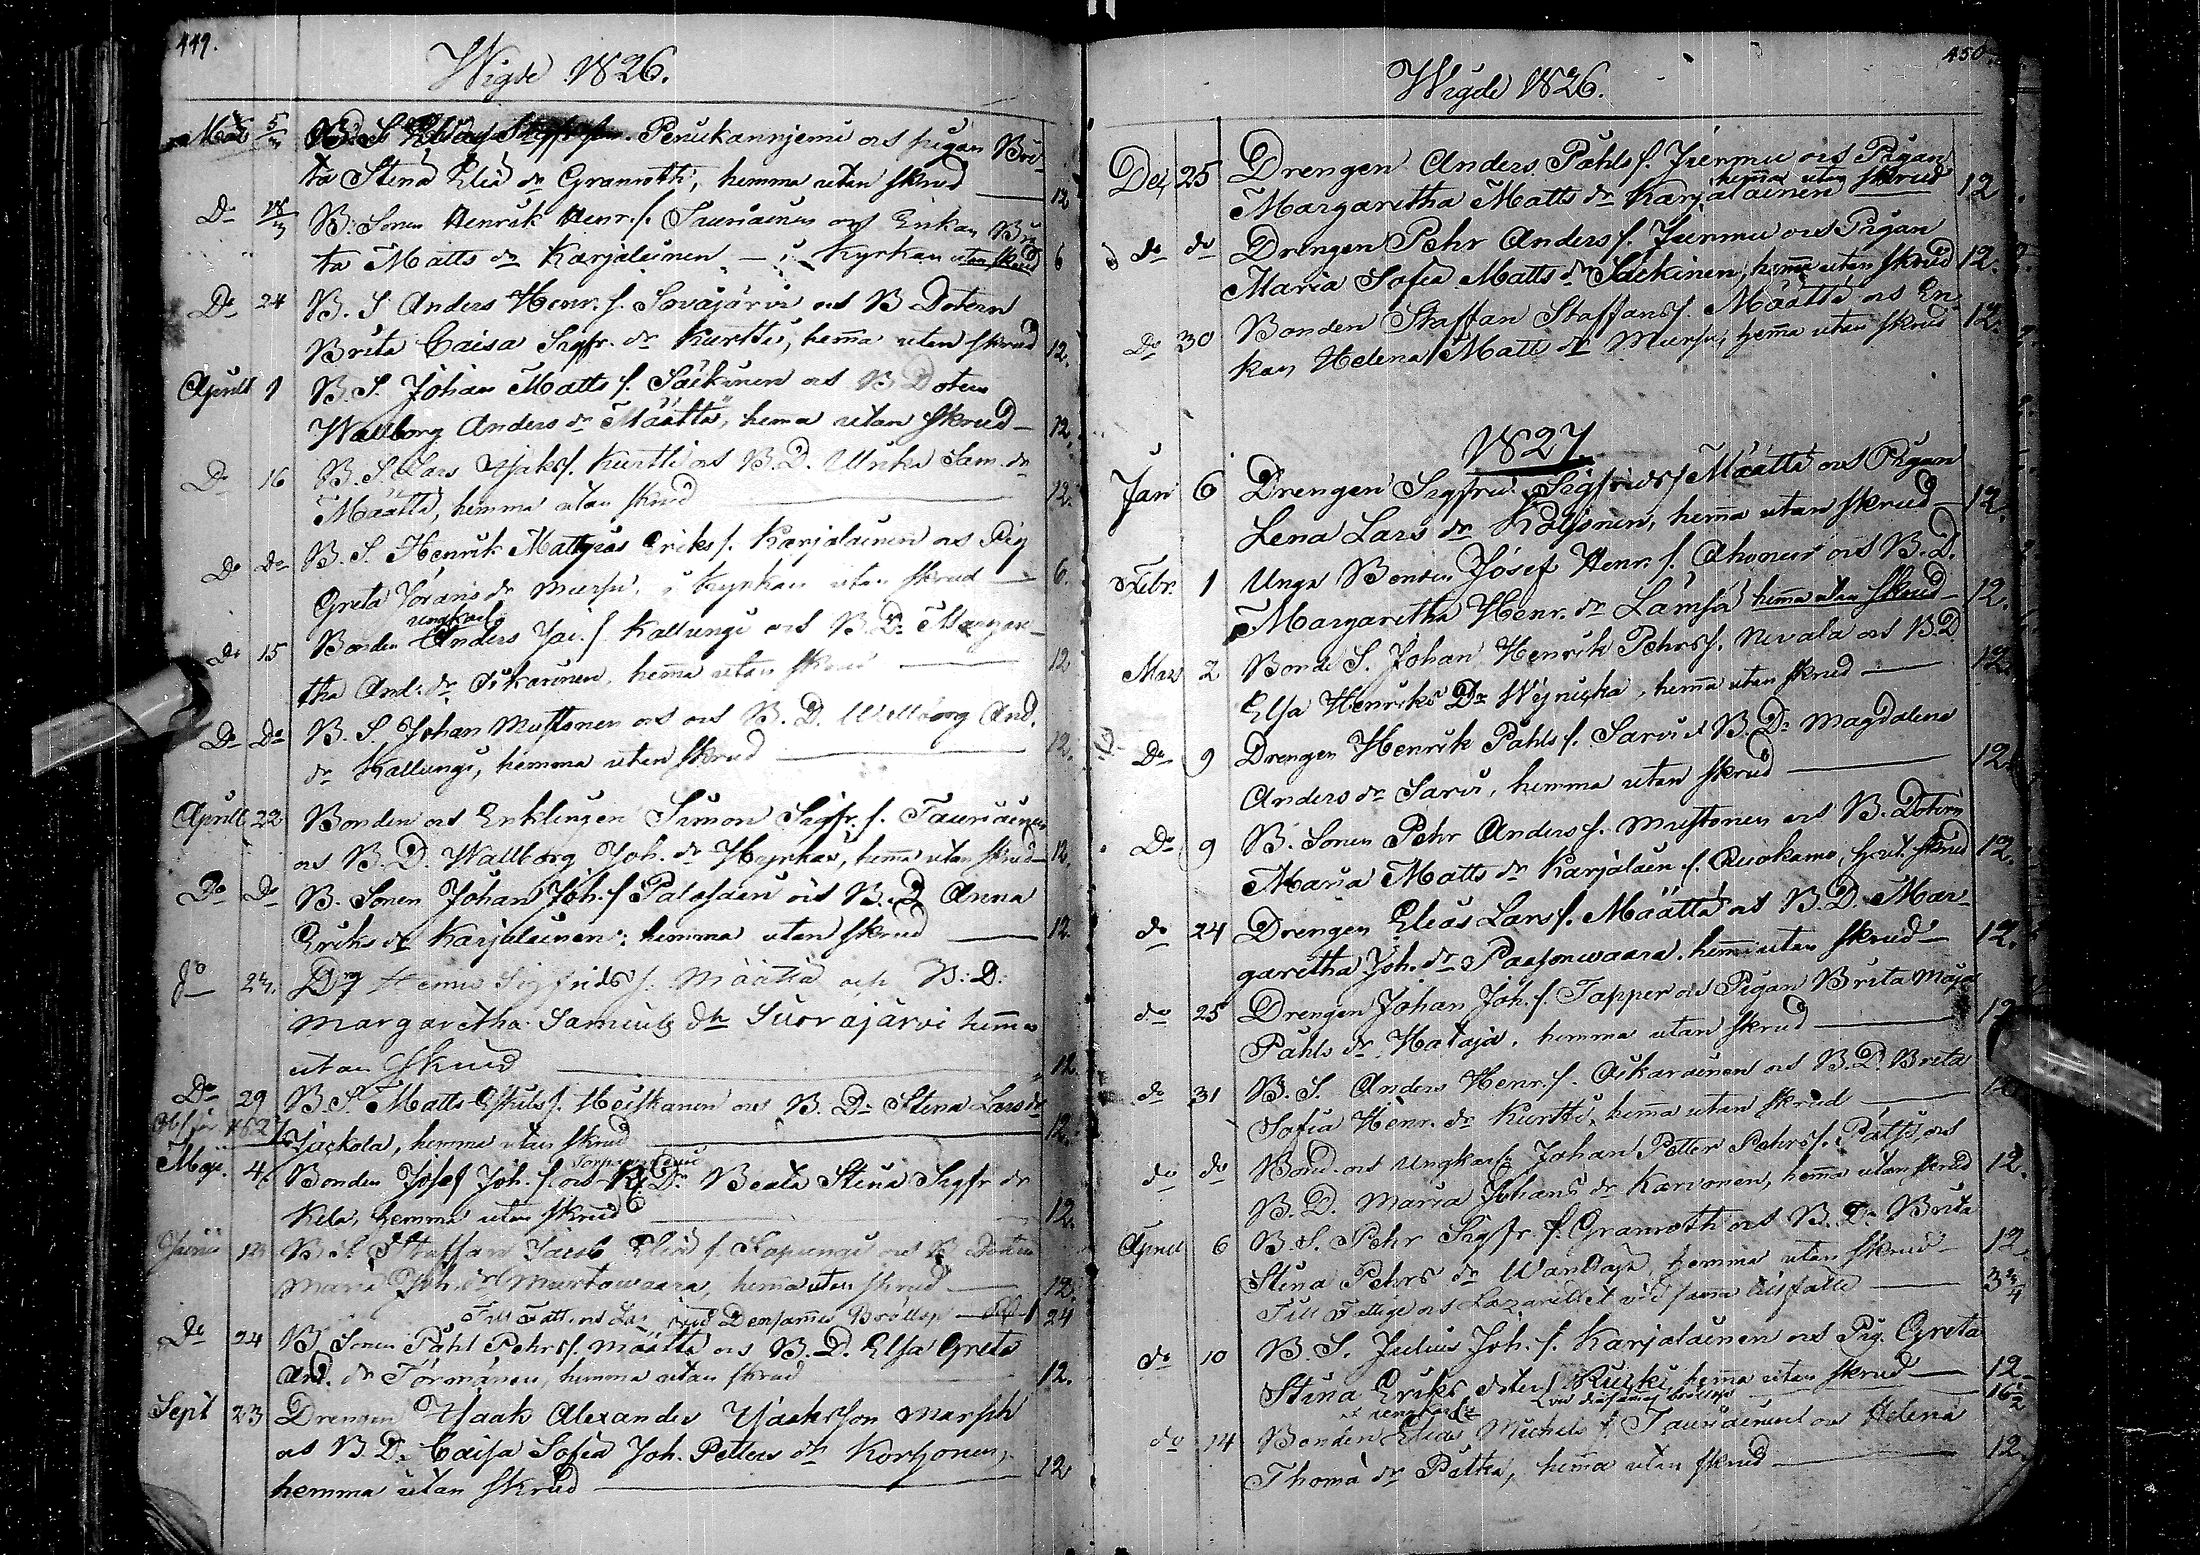 449.
Wigde 1826.
Mars 5/3 B. S. Penickannjemi och pigan Bri-
ta Stina Eliæ dr Granroth, hemma utan skrud 12
Do 18/3 B: Sonen Henrik Henr. s. Tauriainen och Enkan Bri
ta Matts dr Karjalainen — i Kyrkan utan skrud 6
Do 24 B. S Anders Henr. s. Sovajärvi och B Dotern
Brita Caisa Sigfr. dr Kurtti, hema utan skrud 12.
Aprill 1 B. S. Johan Matts s. Säkkinen och B Doteren
Wallborg Anders dr Määttä, hema utan skrud — 12.
Do 16 B. S. Lars Isaks s. Kurtti och B. D. Ulrika Sam. dr
Määttä, hemma utan skrud 12.
Do Do B. S. Henrik Matthias Eriks s. Karjalainen och Pig
Greta Görans dr Mursu, i Kyrkan utan skrud — 6.
ungkarl
Do 15 Bonden Anders Jac. s. Kallungi och B. D. Margare-
tha And. dr Oikarinen, hema utan skrud 12
Do Do B. S. Johan Mustonen och och B. D. Wallborg And.
dr Kallungi, hemma utan skrud 12.
Aprill 22 Bonden och Enklingen Simon Sigfr. s. Tauriainen
och B. D. Wallborg Joh. dr Hyrkäs, hema utan skrud 12.
Do Do B. Sonen Johan Joh. s. Palosaari och B. D Anna
Eriks dr Karjalainen, hemma utan skrud 12.
Do 24. Drg Henric Sigfrids s. Määttä och B: D:
Margaretha Samuels dtr Suorajärvi hemma
utan skrud 12.
Do 29 B. S. Matts Eskils s. Heiskanen och B. D: Stina Lars dr
1827 Jäckola, hemma utan skrud 12.
Maji. 4 Bonden Josef Joh. s. och B. D: Beata Stina Sigfr dr
Kela, hemma utan skrud 12.
Junii B. S Staffan Jacob Eliæ s. och B Dotern
Maria Joh. dr Murtowaara, hema utan skrud 12.
Till Fatt. och Laz. vid Densames Bröllop 24
Do 24 B. Sonen Påhl Pehrs s. Määttä och B. D. Elsa Greta
And. dr Törmänen, hemma utan skrud 12.
Sept 23 Drengen Isaak Alexander Isacksson Marsch
och B D. Caisa Sofia Joh. Petters dr Korhonen,
hemma utan skrud 12
450
Wigde 1826.
Dec 25 Drengen Anders Påhls s. Jurmu och Pigan
hema utan skrud
Margaretha Matts dr Karjalainen 12
do do Drengen Pehr Anders s. Juurmu och Pigan
Maria Sofia Matts dr Säckinen, hema utan skrud 12.
Do 30 Bonden Staffan Staffans s. Määttä och En-
kan Helena Matts dr Mursu, hema utan skrud 12.
1827
Jan 6 Drengen Sigfrid Sigfrids s Määttä och Pigan
Lena Lars dr, hema utan skrud 12.
Febr. 1 Unga Bonden Josef Henr. s. Ahonen och B. D.
Margaretha Henr. dr Lämsä hema utan skrud 12.
Mars 2 Bonde S. Johan Henrik Pehrs s. Nevala och B. D
Elsa Henriks Dr, hema utan skrud 12.
Do 9 Drengen Henrik Påhls s. Sarvi et B. D: Magdalena
Anders dr Sarvi, hemma utan skrud 12.
Do 9 B. Sonen Pehr Anders s. Mustonen och B. Dotern
Maria Matts dr Karjalain s. Ruokamo, h. ut. skrud 12.
do 24 Drengen Elias Lars s. Määttä och B. D. Mar-
garetha Joh. dr Paasonwaara, hema utan skrud 12.
do 25 Drengen Johan Joh. s. Tapper och Pigan Brita Maja
Påhls dr Hataja, hemma utan skrud 12
do 31 B. S. Anders Henr. s. Oikarainen och B. D. Brita
Sofia Henr. dr Kurtti, hema utan skrud
do do Bond. och Ungkarl: Johan Petter Pehrs s. Pätsi och
B. D. Maria Johans dr Karvonen, hema utan skrud 12.
Aprill 6 B. S. Pehr Sigfr. s. Granroth och B. D. Brita
Stina Pehrs dr, hemma utan skrud 12.
Till Fattige och Lazarettet vid sama tilfälle 3 3/4
do 10 B. S. Julius Joh. s. Karjalainen och Pig. Greta
Stina Eriks doter Ruiki hema utan skrud 12
et ungkarl: vid desames bröllop 16
do 14 Bonden Elias Michels s. Tauriainen och Helena
Thoma dr Pätka, hema utan skrud 12.